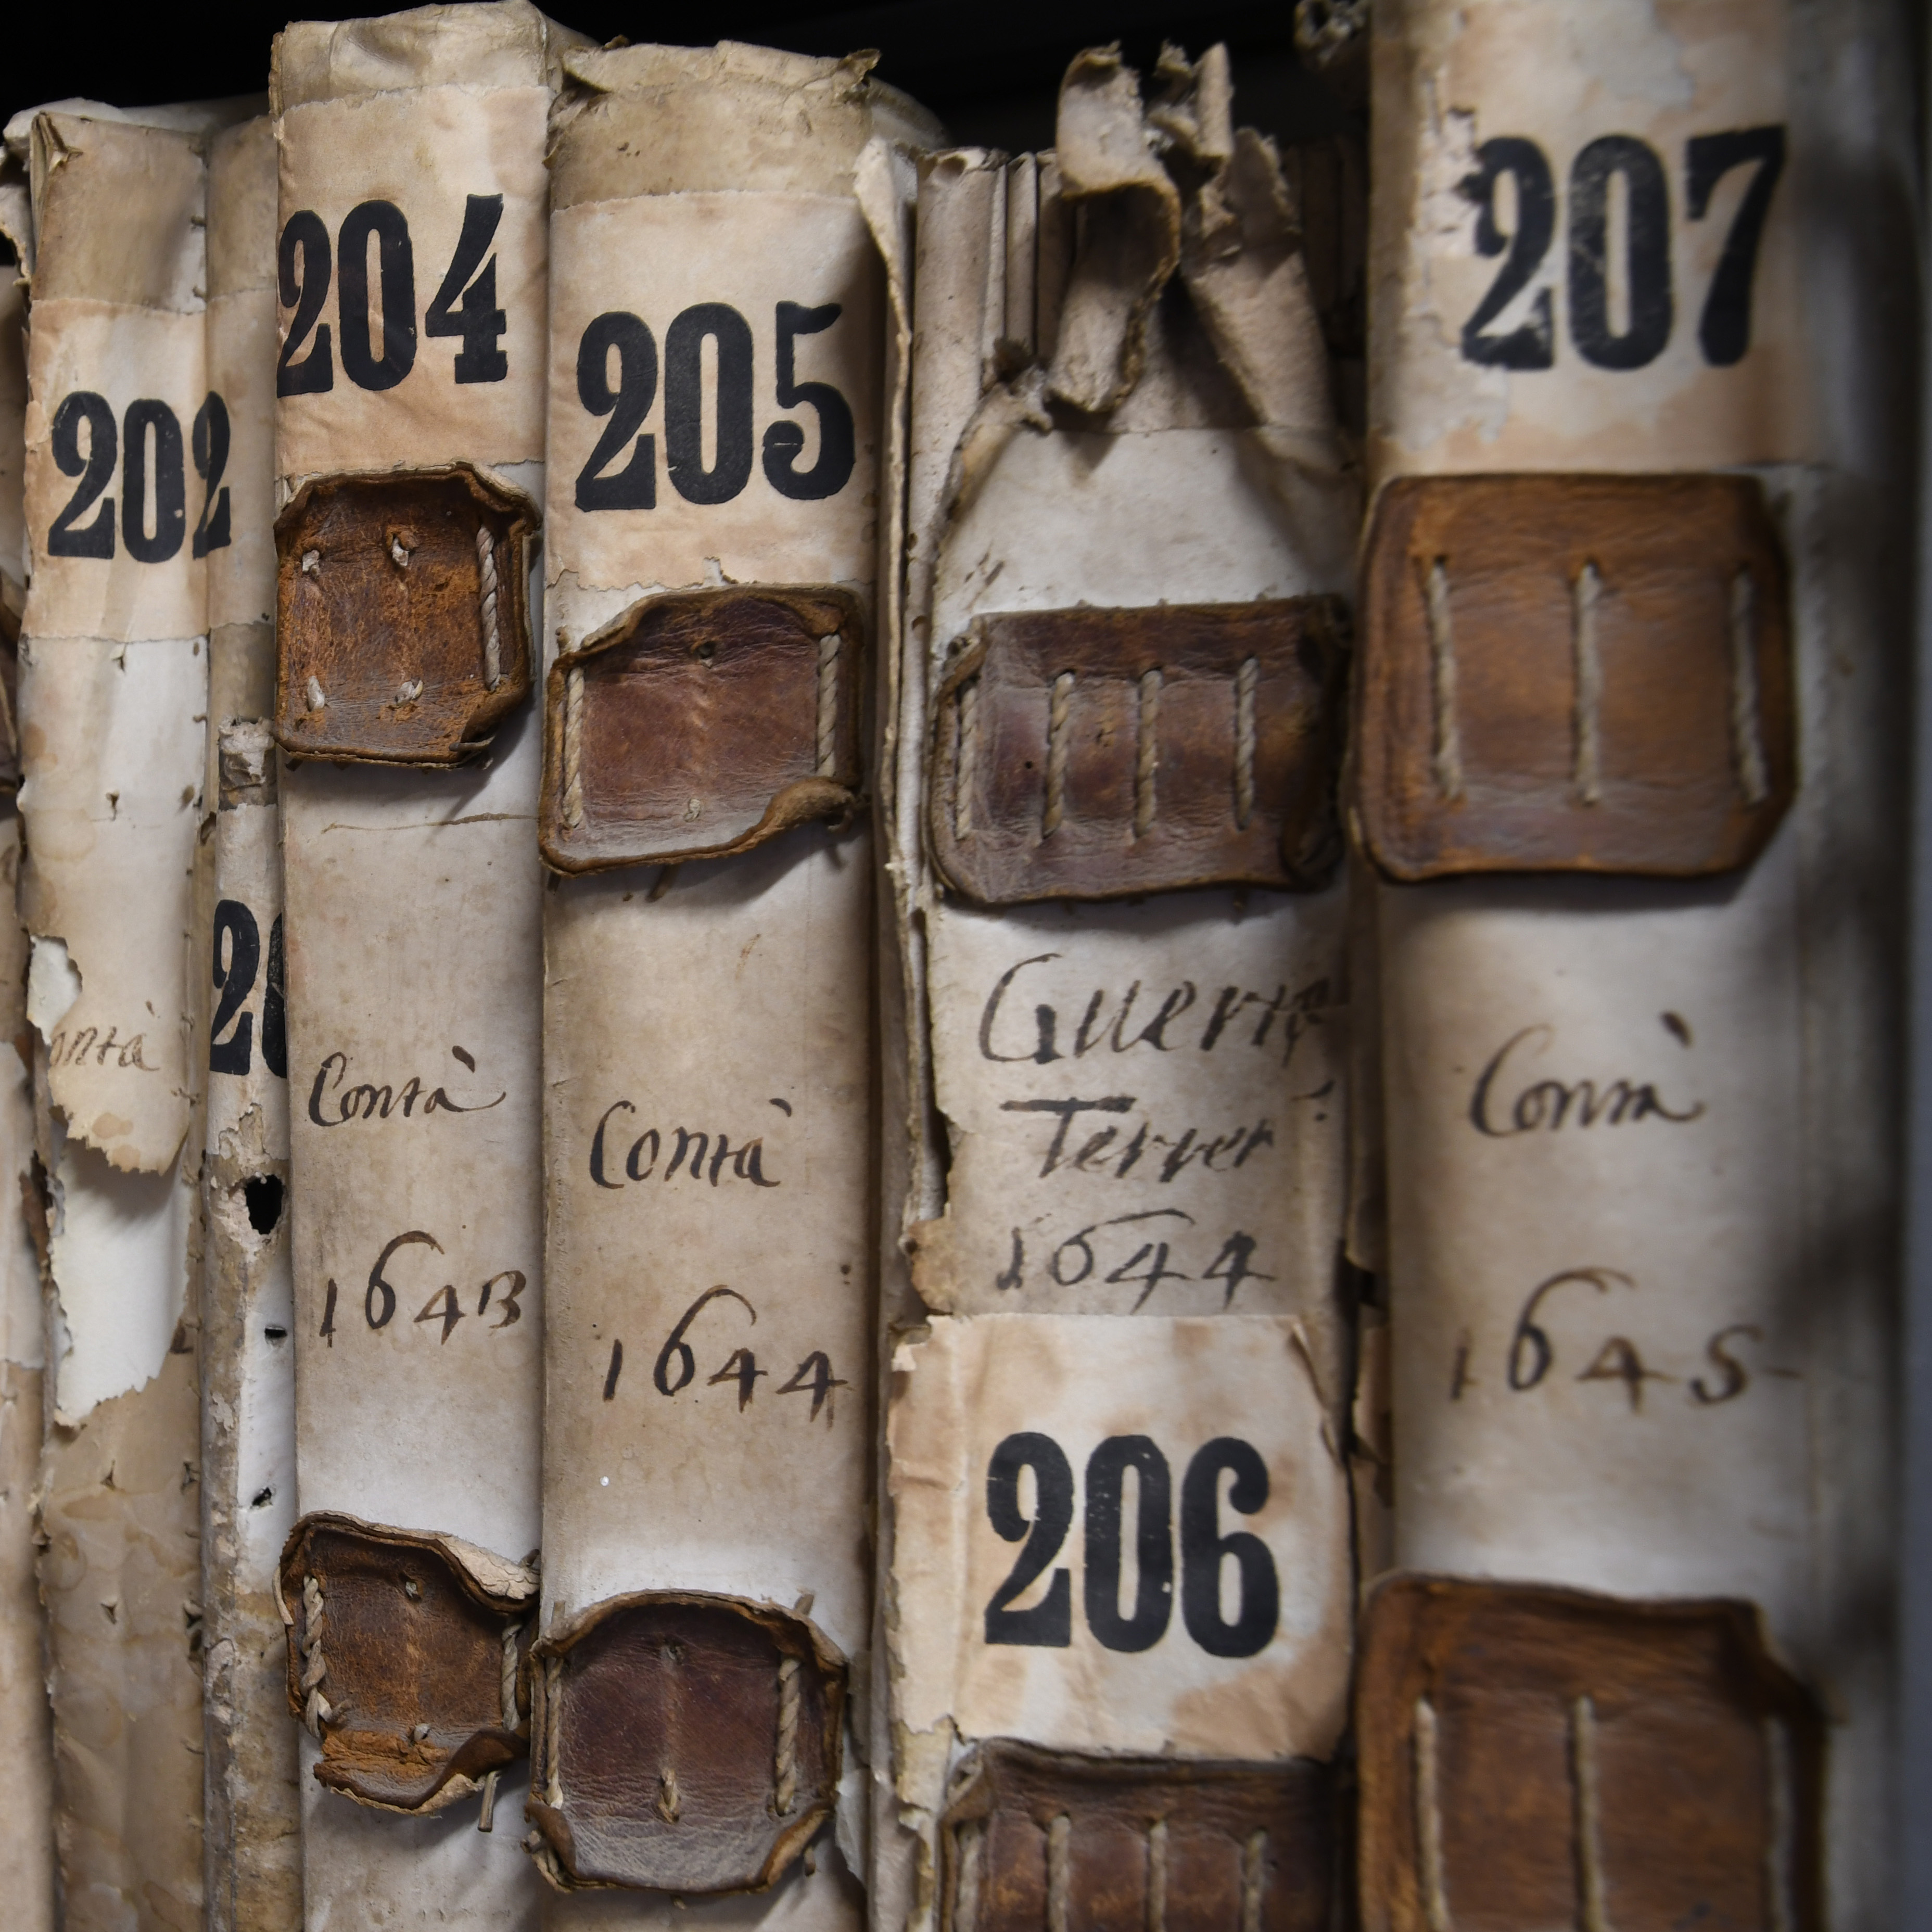 202
ontà
204
Contà
1643
205
Contà
1644
Guerra
Terrer
1644
206
207
Contà
1645